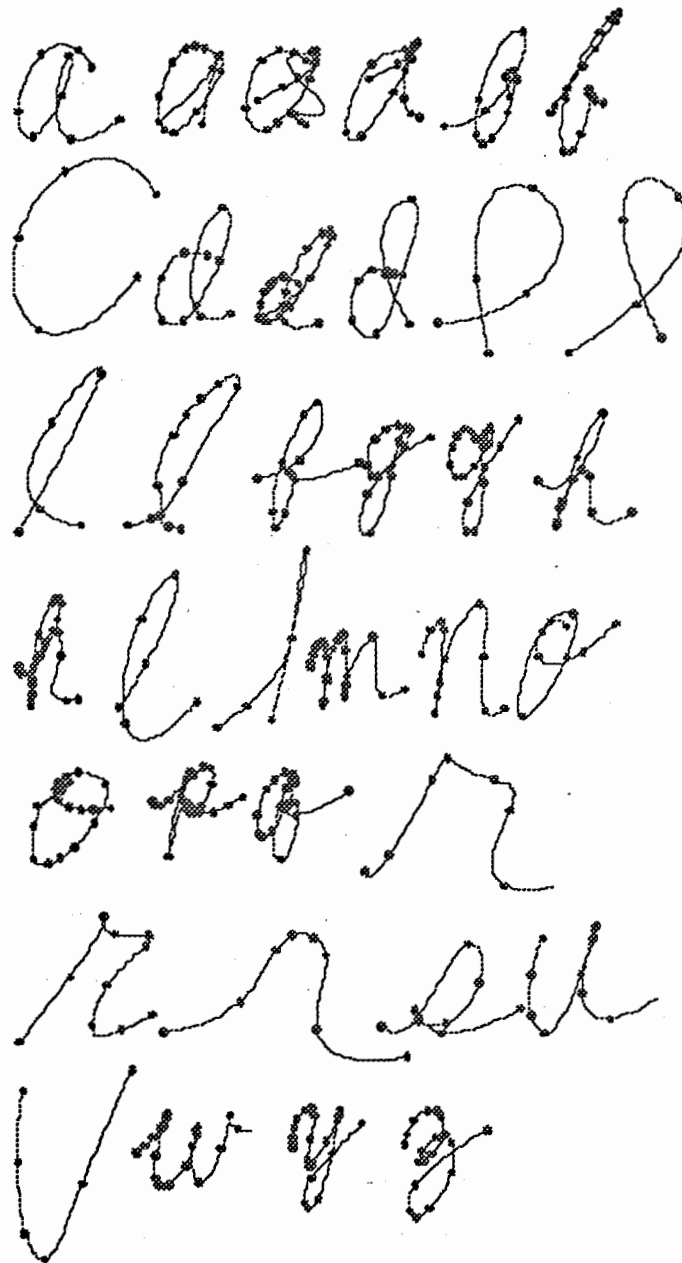 a a a a b b
c d d d e e
e e f g g h
h l l m n o
o p q r
r r s u
v w y z